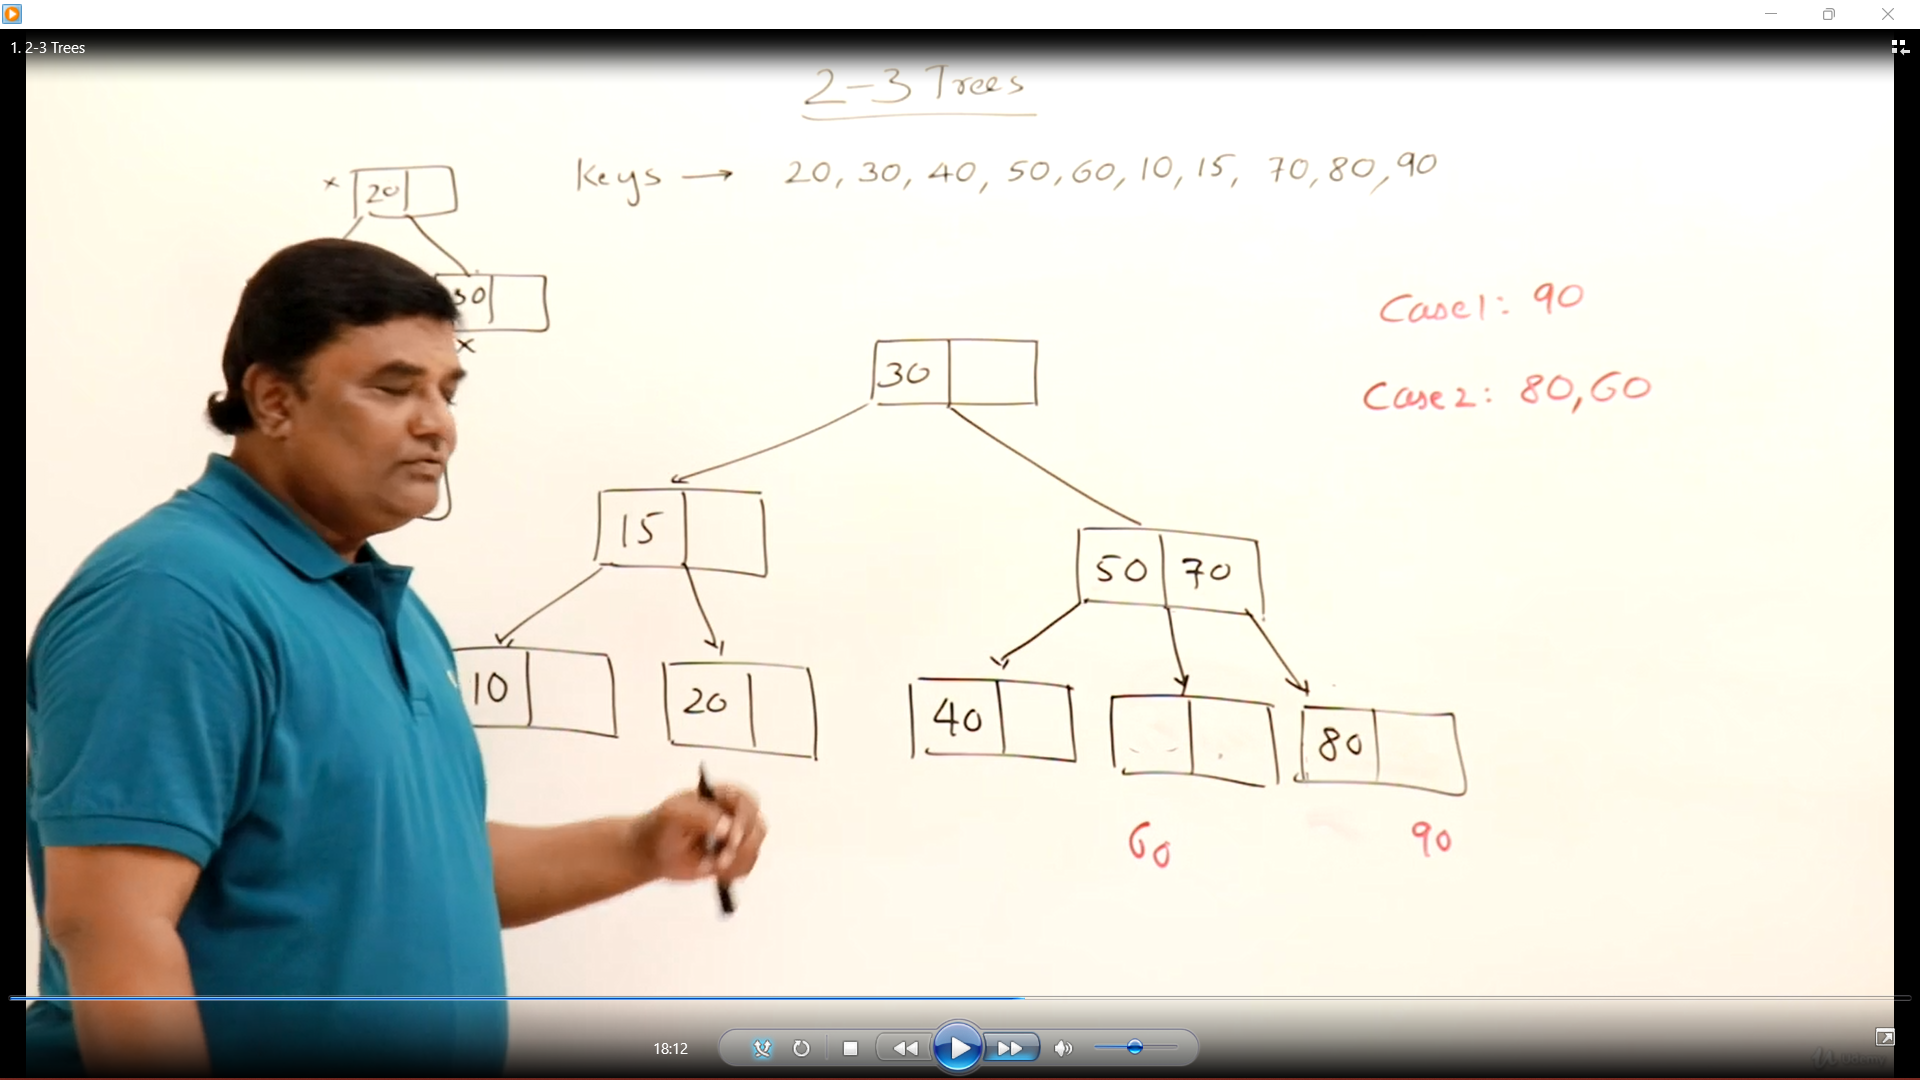 1. 2-3 Trees
2-3 Trees
Keys → 20, 30, 40, 50, 60, 10, 15, 70, 80, 90
x 20
30
x
Case1: 90
Case2: 80, 60
30
15
50 70
10 20 40 80
60 90
18:12
Udemy